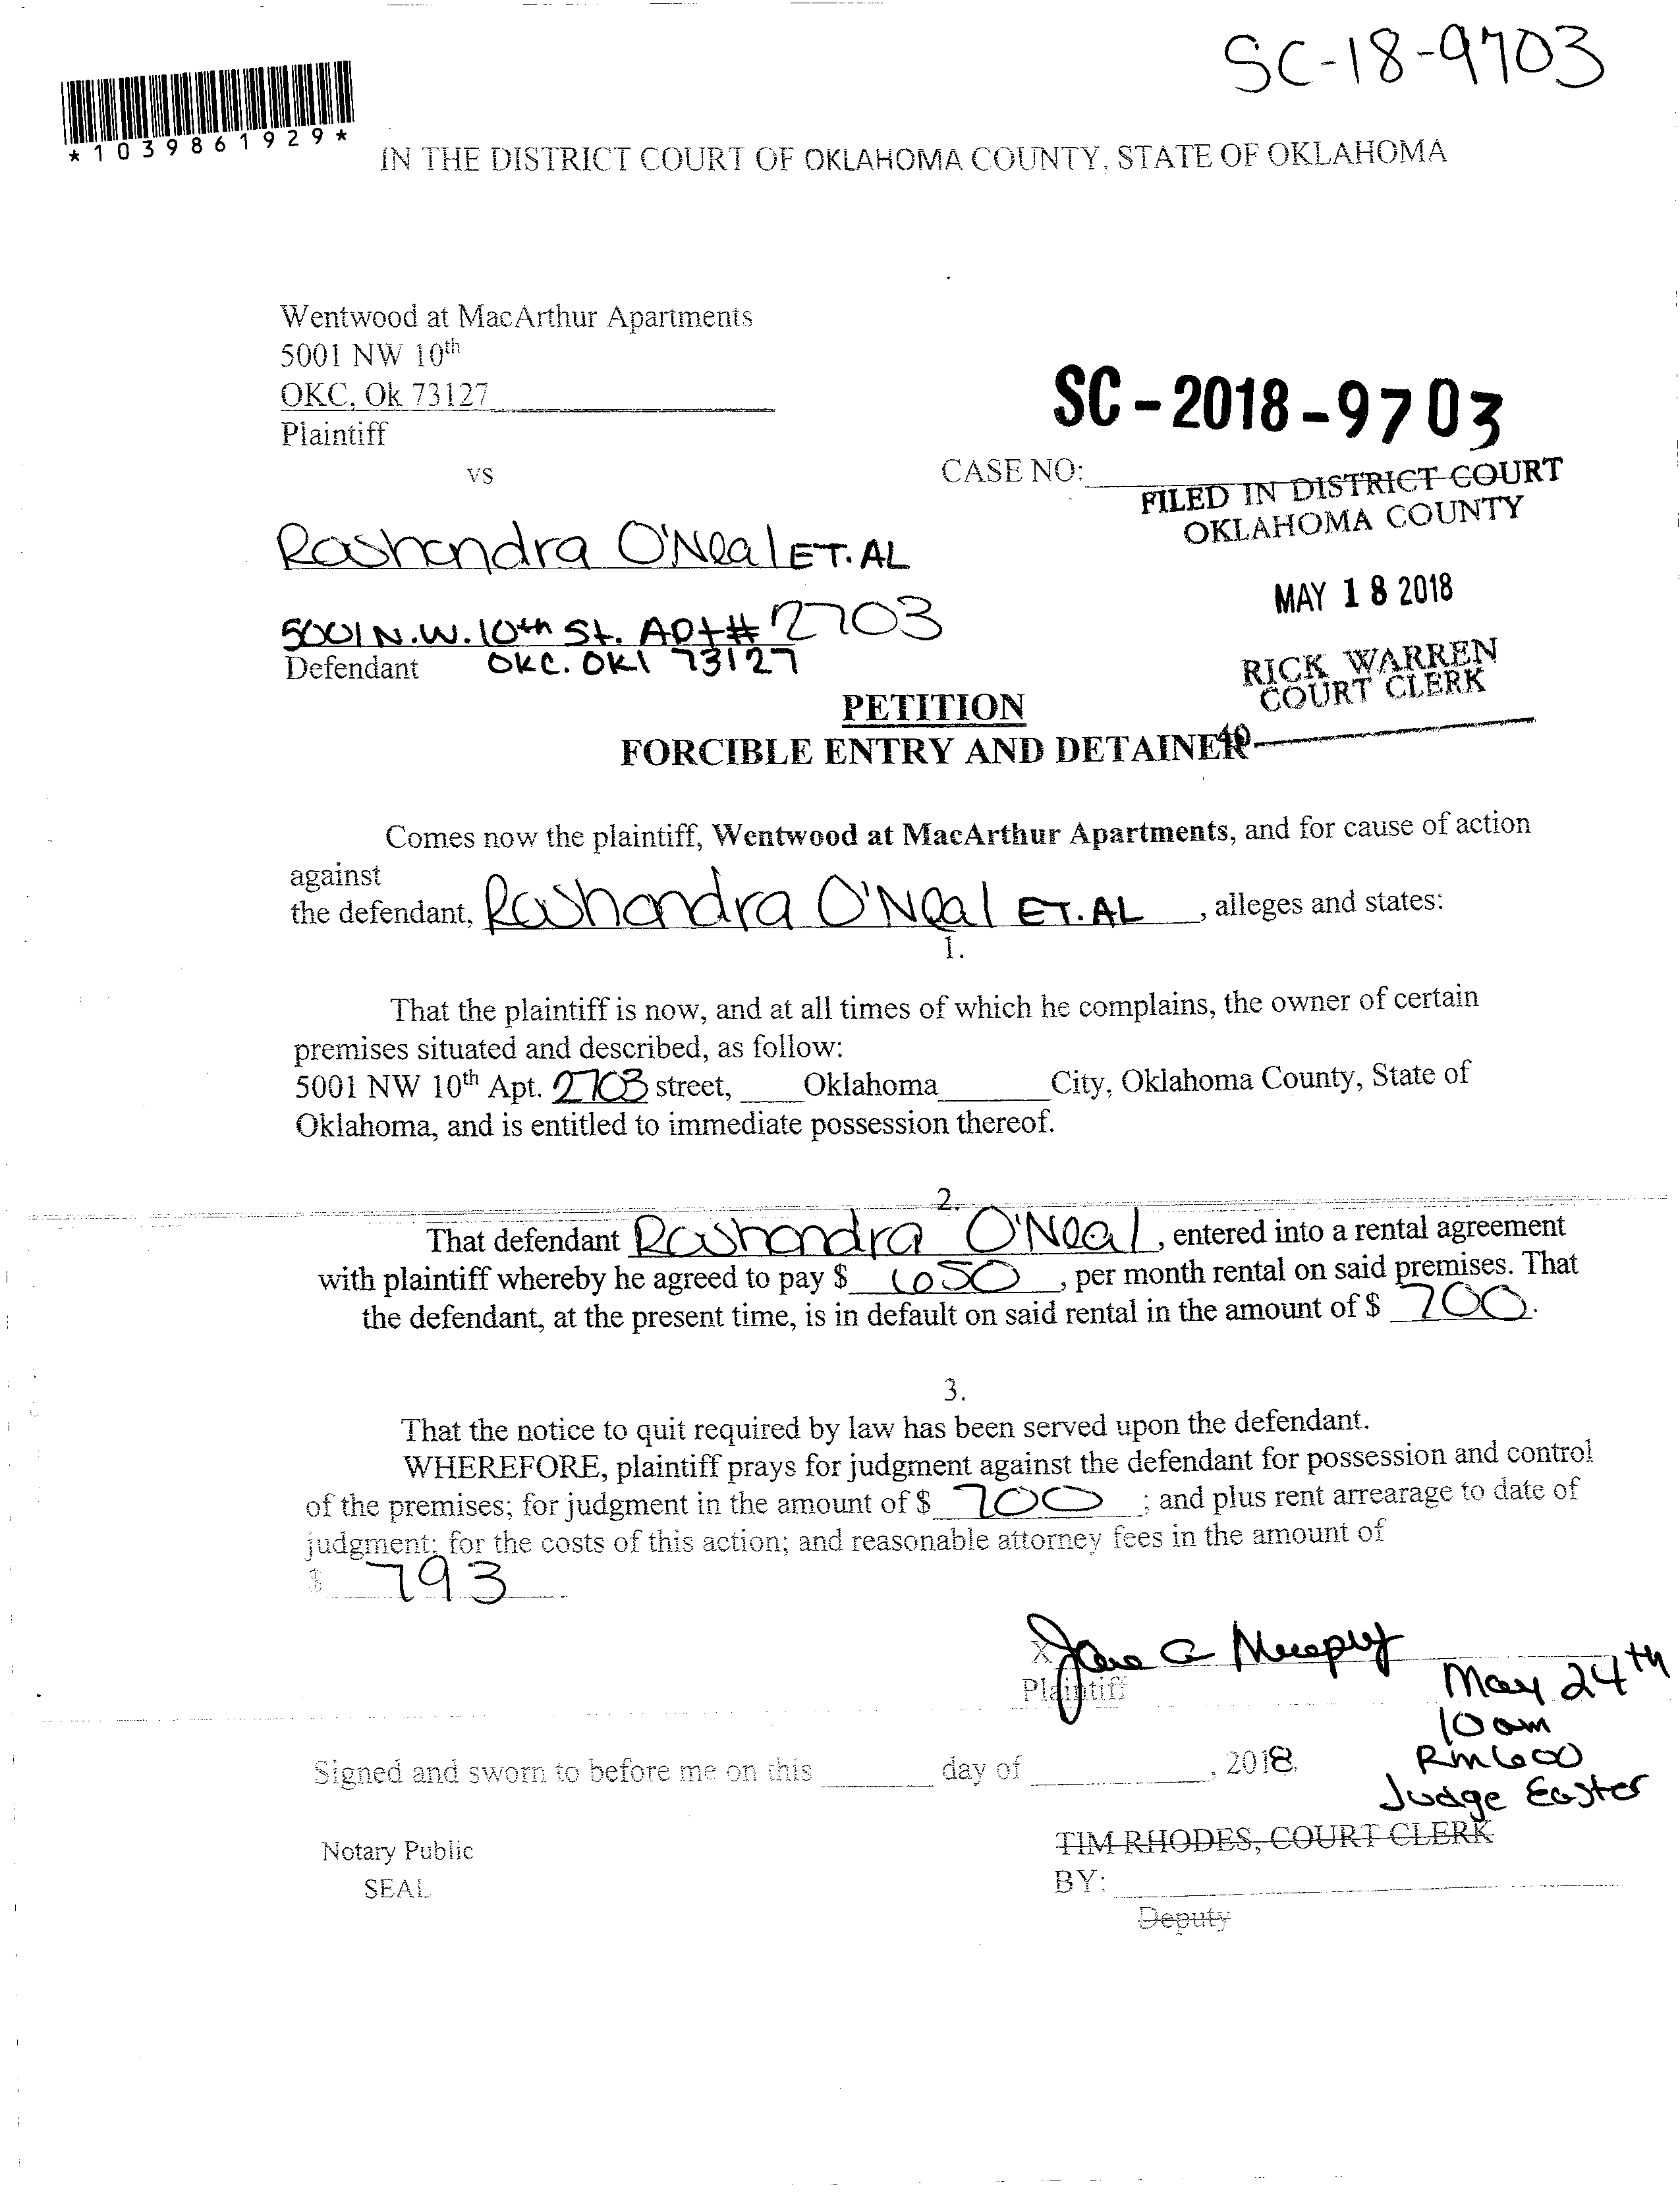 SC-18-9703
*1039861929*
IN THE DISTRICT COURT OF OKLAHOMA COUNTY, STATE OF OKLAHOMA
Wentwood at MacArthur Apartments
5001 NW 10th
OKC, Ok 73127
Plaintiff
SC-2018-9703
vs
CASE NO:
FILED IN DISTRICT COURT
OKLAHOMA COUNTY
Rashandra O'Neal ET. AL
MAY 18 2018
5001 N.W. 10th St. Apt# 2703
Defendant OKC. OKl 73127
RICK WARREN
COURT CLERK
40
PETITION
FORCIBLE ENTRY AND DETAINER
Comes now the plaintiff, Wentwood at MacArthur Apartments, and for cause of action
against
the defendant, Rashandra O'Neal ET. AL , alleges and states:
1.
That the plaintiff is now, and at all times of which he complains, the owner of certain
premises situated and described, as follow:
5001 NW 10th Apt. 2703 street, Oklahoma City, Oklahoma County, State of
Oklahoma, and is entitled to immediate possession thereof.
2.
That defendant Rashandra O'Neal, entered into a rental agreement
with plaintiff whereby he agreed to pay $ 650 , per month rental on said premises. That
the defendant, at the present time, is in default on said rental in the amount of $ 700.
3.
That the notice to quit required by law has been served upon the defendant.
WHEREFORE, plaintiff prays for judgment against the defendant for possession and control
of the premises; for judgment in the amount of $ 700 ; and plus rent arrearage to date of
judgment; for the costs of this action; and reasonable attorney fees in the amount of
$ 793
X Jane C Murphy
Plaintiff
May 24th
10am
Rm 600
Judge Easter
Signed and sworn to before me on this day of , 2018.
TIM RHODES, COURT CLERK
Notary Public
BY:
SEAL
Deputy